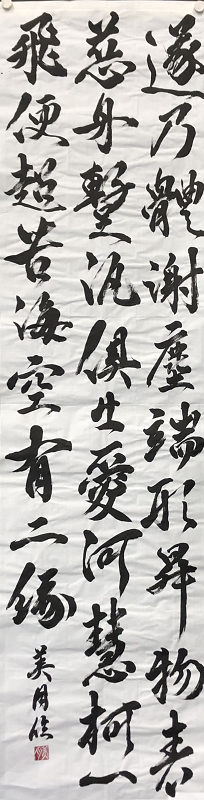 遂乃體謝塵端形昇物表
慈舟汎俱出愛河慧柯一
飛便超苦海空有二緣
吳